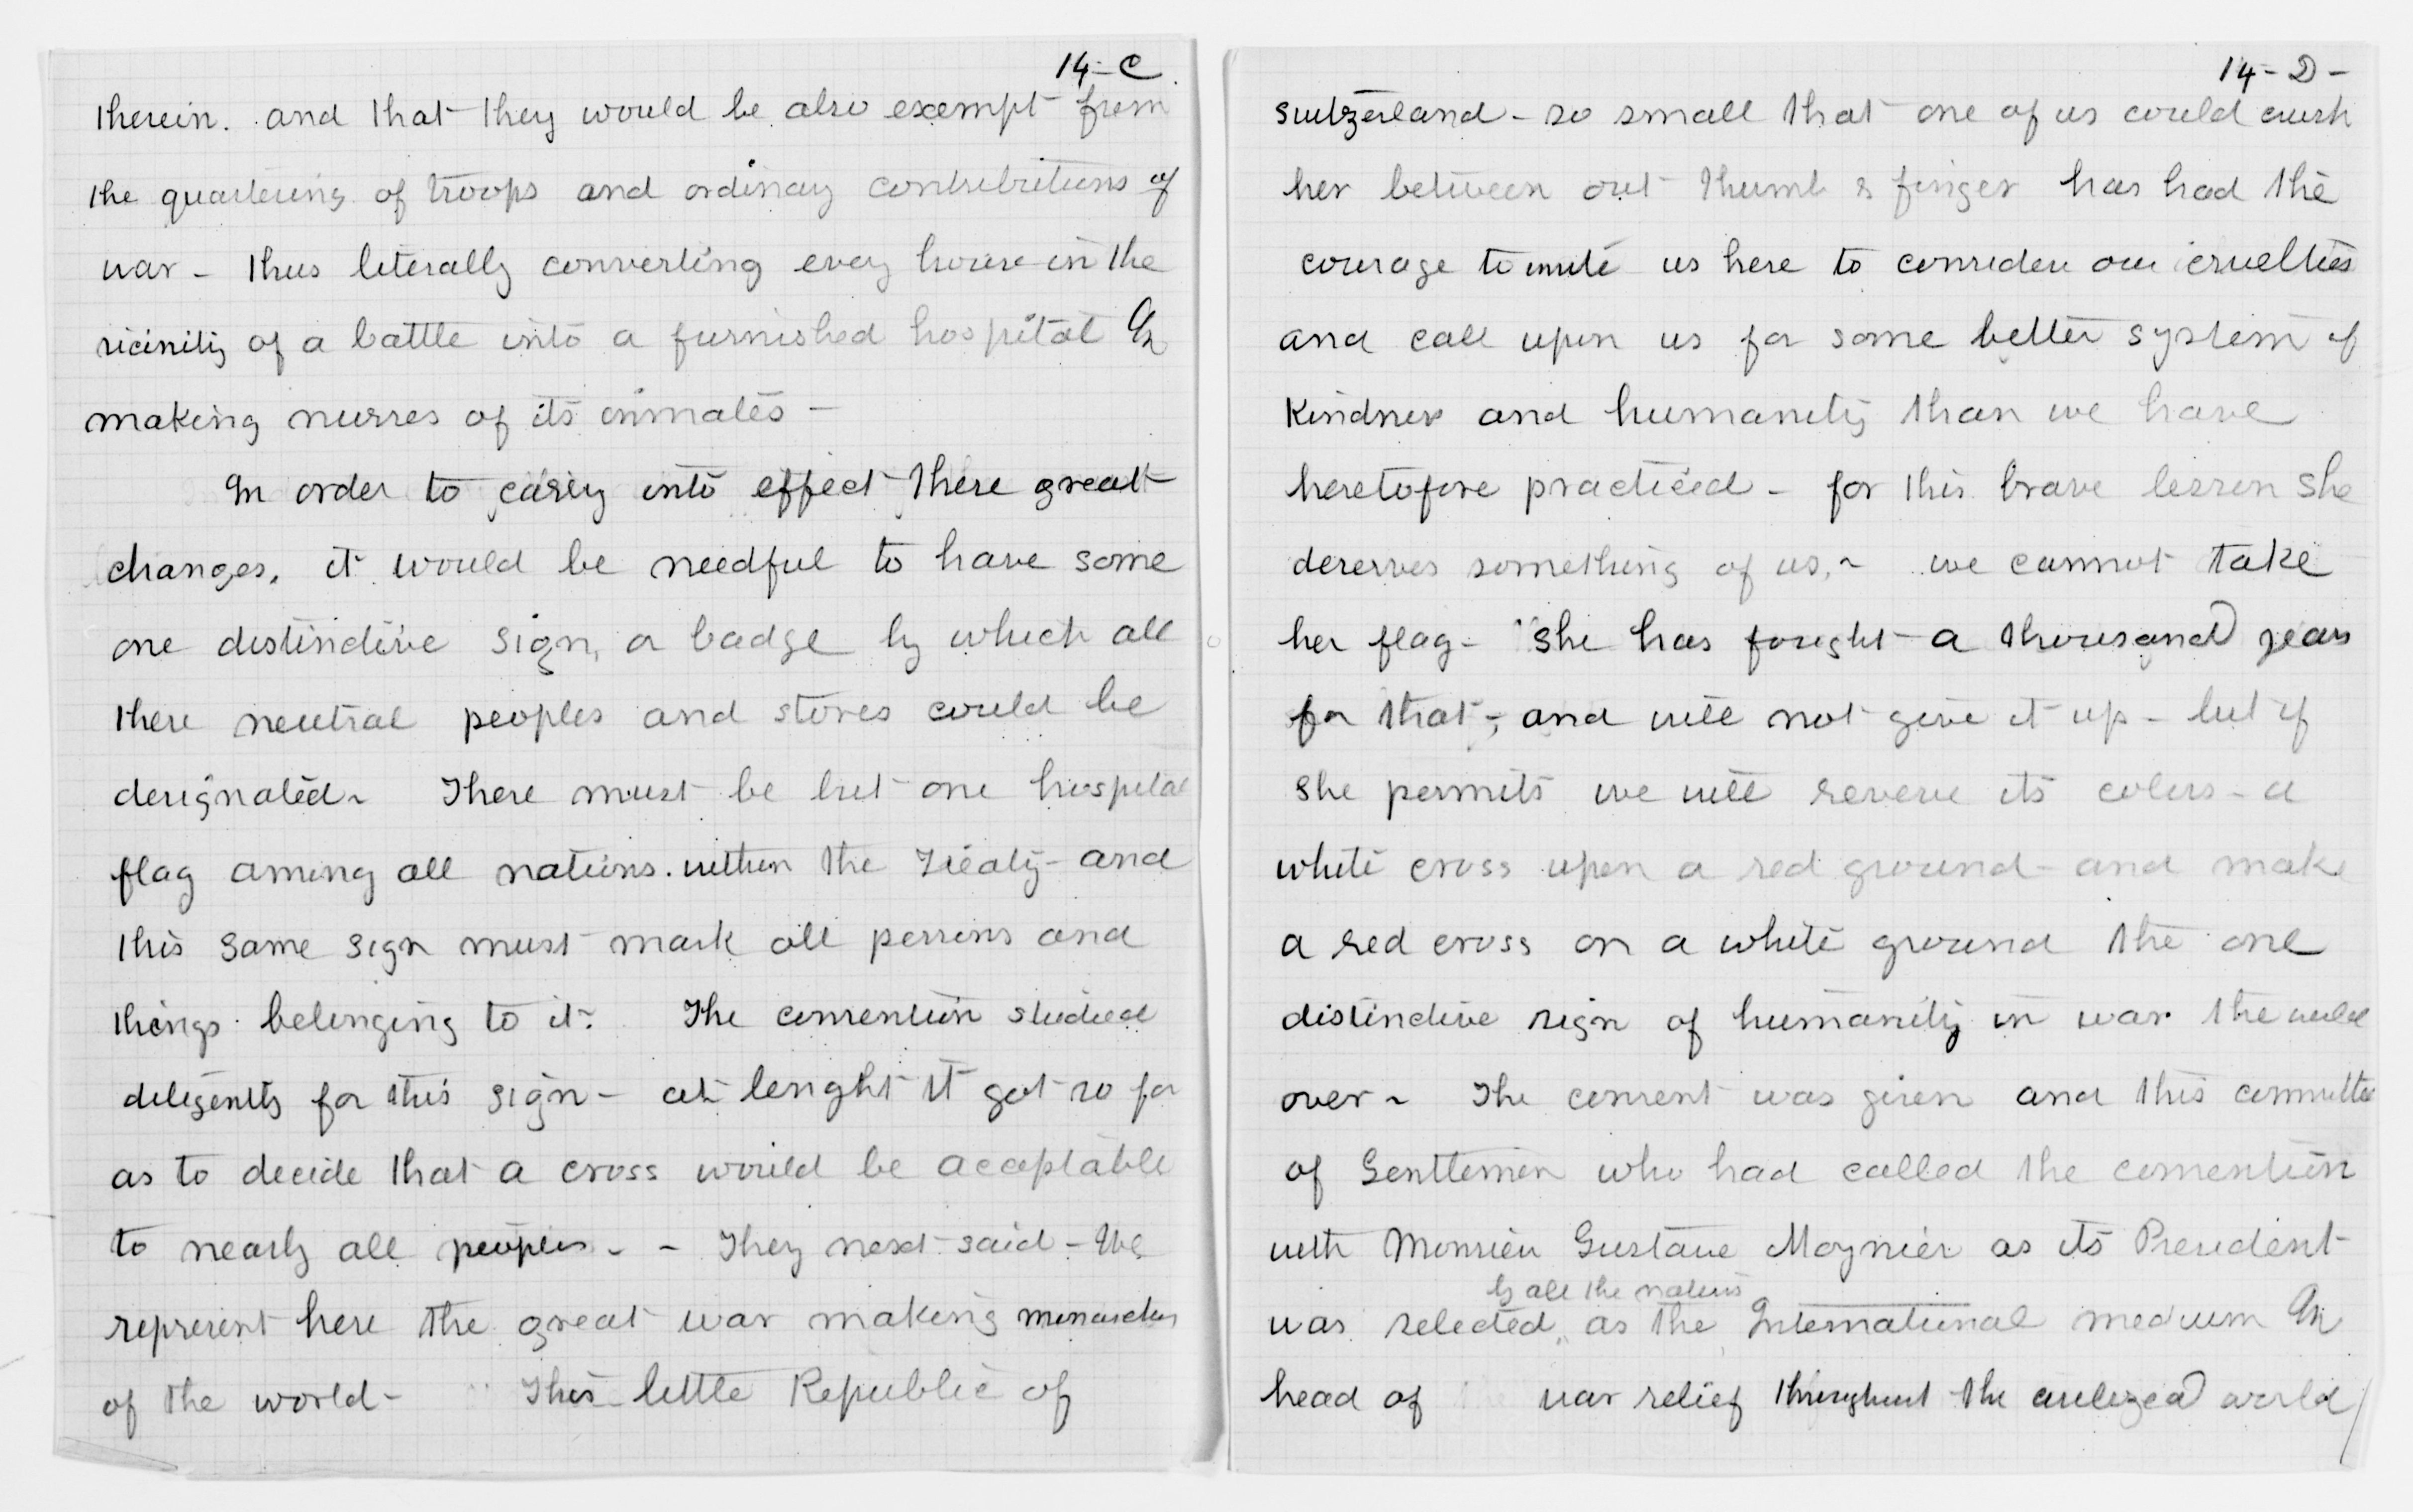 14-C
therein. and that they would be also exempt from
the quartering of troops and ordinary contributions of
war - thus literally converting every house in the
vicinity of a battle into a furnished hospital &
making nurses of its inmates -
In order to carry into effect these great
changes, it would be needful to have some
one distinctive sign, a badge by which all
these neutral peoples and stores could be
designated - There must be but one hospital
flag among all nations. within the Treaty - and
this same sign must mark all persons and
things belonging to it - The convention studied
diligently for this sign - at lenght it got so far
as to decide that a cross would be acceptable
to nearly all peoples - - They next said - We
represent here the great war making monarchies
of the world - This little Republic of
14-D-
Switzerland - so small that one of us could crush
her between out thumb & finger has had the
courage to invite us here to consider our cruelties
and call upon us for some better system of
Kindness and humanity than we have
heretofore practiced - for this brave lesson she
deserves something of us, - we cannot take
her flag - "she has fought a thousand years
for that, - and will not give it up - but if
she permits we will reverse its colors - a
white cross upon a red ground - and make
a red cross on a white ground the one
distinctive sign of humanity in war the world
over - The consent was given and this committee
of Gentlemen who had called the convention
with Monsieu Gustave Moynier as its President
by all the nations
was selected, as the International medium &
head of war relief throughout the civilized world